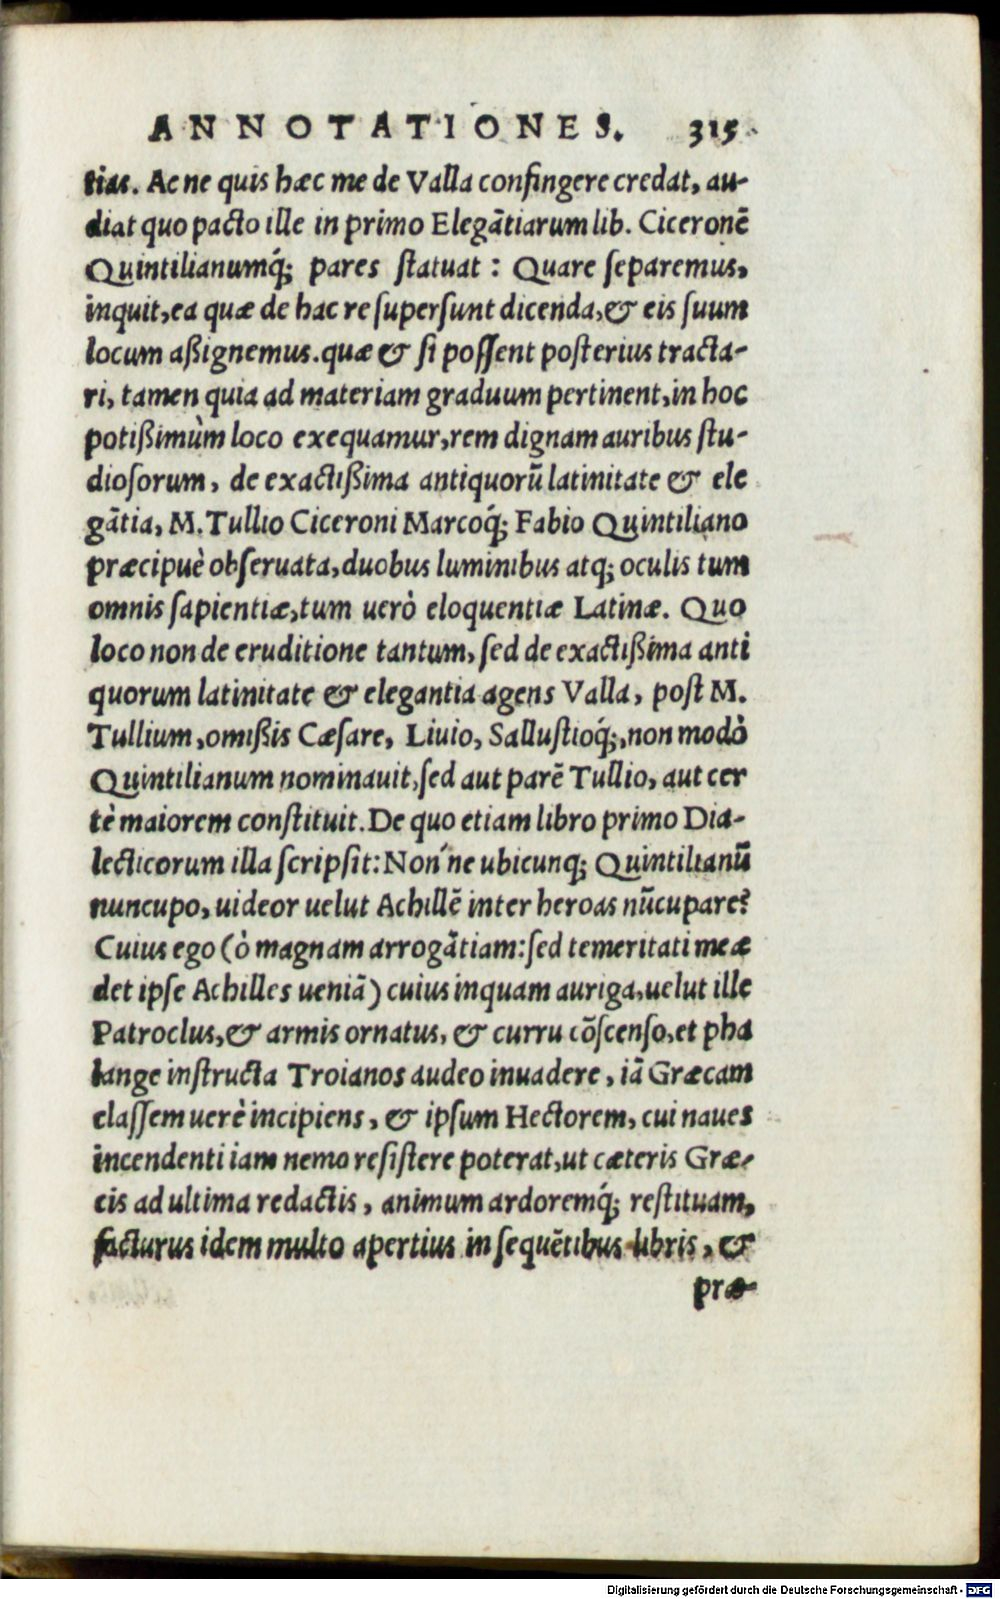 ANNOTATIONES. 315
tias. Ac ne quis hæc me de Valla confingere credat, au-
diat quo pacto ille in primo Elegātiarum lib. Ciceronē
Quintilianumq́; pares ſtatuat : Quare ſeparemus,
inquit, ea quæ de hac re ſuperſunt dicenda, & eis ſuum
locum aßignemus. quæ & ſi poſſent poſterius tracta-
ri, tamen quia ad materiam graduum pertinent, in hoc
potißimùm loco exequamur, rem dignam auribus ſtu-
dioſorum, de exactißima antiquorū latinitate & ele
gātia, M. Tullio Ciceroni Marcoq́; Fabio Quintiliano
præcipuè obſeruata, duobus luminibus atq; oculis tum
omnis ſapientiæ, tum uerò eloquentiæ Latinæ. Quo
loco non de eruditione tantum, ſed de exactißima anti
quorum latinitate & elegantia agens Valla, poſt M.
Tullium, omißis Cæſare, Liuio, Salluſtioq́;, non modò
Quintilianum nominauit, ſed aut parē Tullio, aut cer
tè maiorem conſtituit. De quo etiam libro primo Dia-
lecticorum illa ſcripſit: Non´ne ubicunq; Quintilianū
nuncupo, uideor uelut Achillē inter heroas nūcupare?
Cuius ego (ò magnam arrogātiam: ſed temeritati meæ
det ipſe Achilles ueniā) cuius inquam auriga, uelut ille
Patroclus, & armis ornatus, & curru cōſcenſo, et pha
lange inſtructa Troianos audeo inuadere, iā Græcam
claſſem uerè incipiens, & ipſum Hectorem, cui naues
incendenti iam nemo reſiſtere poterat, ut cæteris Græ-
cis ad ultima redactis, animum ardoremq́; reſtituam,
facturus idem multo apertius in ſequētibus libris, &
præ-
Digitalisierung gefördert durch die Deutsche Forschungsgemeinschaft - DFG